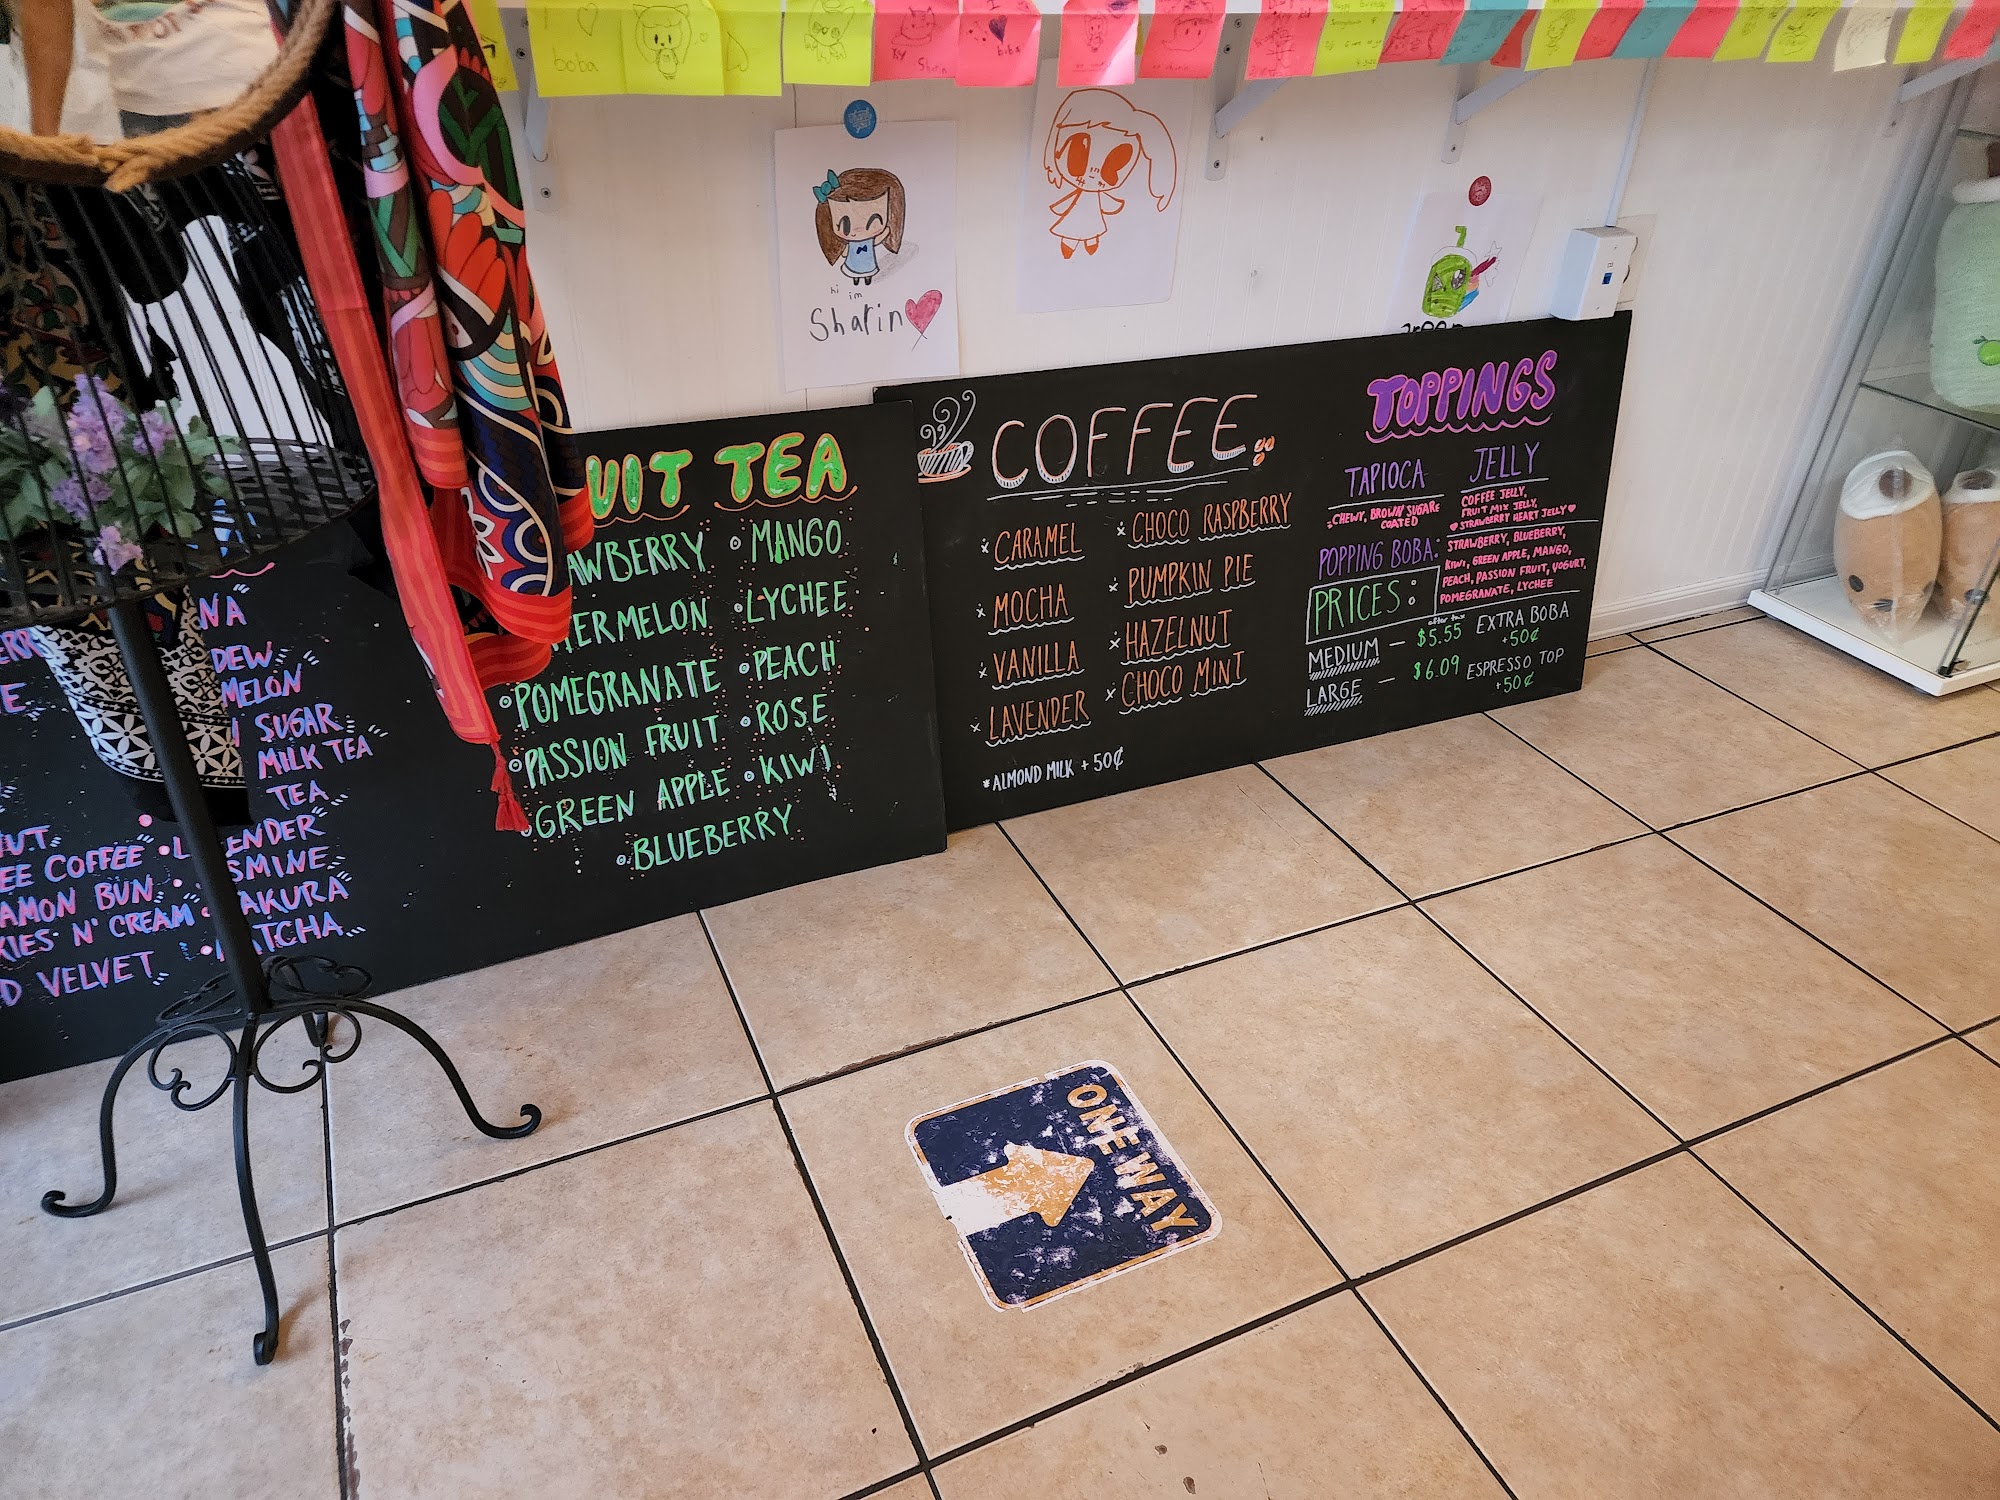 boba
by Sharin
boba
hi im
Sharin
UIT TEA
AWBERRY
MANGO
ERMELON
LYCHEE
POMEGRANATE
PEACH
PASSION FRUIT
ROSE
GREEN APPLE
KIWI
BLUEBERRY
COFFEE
*CARAMEL
*CHOCO RASPBERRY
*MOCHA
*PUMPKIN PIE
*VANILLA
*HAZELNUT
*LAVENDER
*CHOCO MINT
*ALMOND MILK + 50¢
TOPPINGS
TAPIOCA
CHEWY, BROWN SUGAR
COATED
JELLY
COFFEE JELLY,
FRUIT MIX JELLY,
♥ STRAWBERRY HEART JELLY ♥
POPPING BOBA:
STRAWBERRY, BLUEBERRY,
KIWI, GREEN APPLE, MANGO,
PEACH, PASSION FRUIT, YOGURT,
POMEGRANATE, LYCHEE
PRICES:
after tax
MEDIUM — $5.55
LARGE — $6.09
EXTRA BOBA
+50¢
ESPRESSO TOP
+50¢
NA
DEW
MELON
SUGAR
MILK TEA
TEA
UT
EE COFFEE
ENDER
AMON BUN
SMINE
KIES N' CREAM
AKURA
D VELVET
ATCHA
ONE WAY